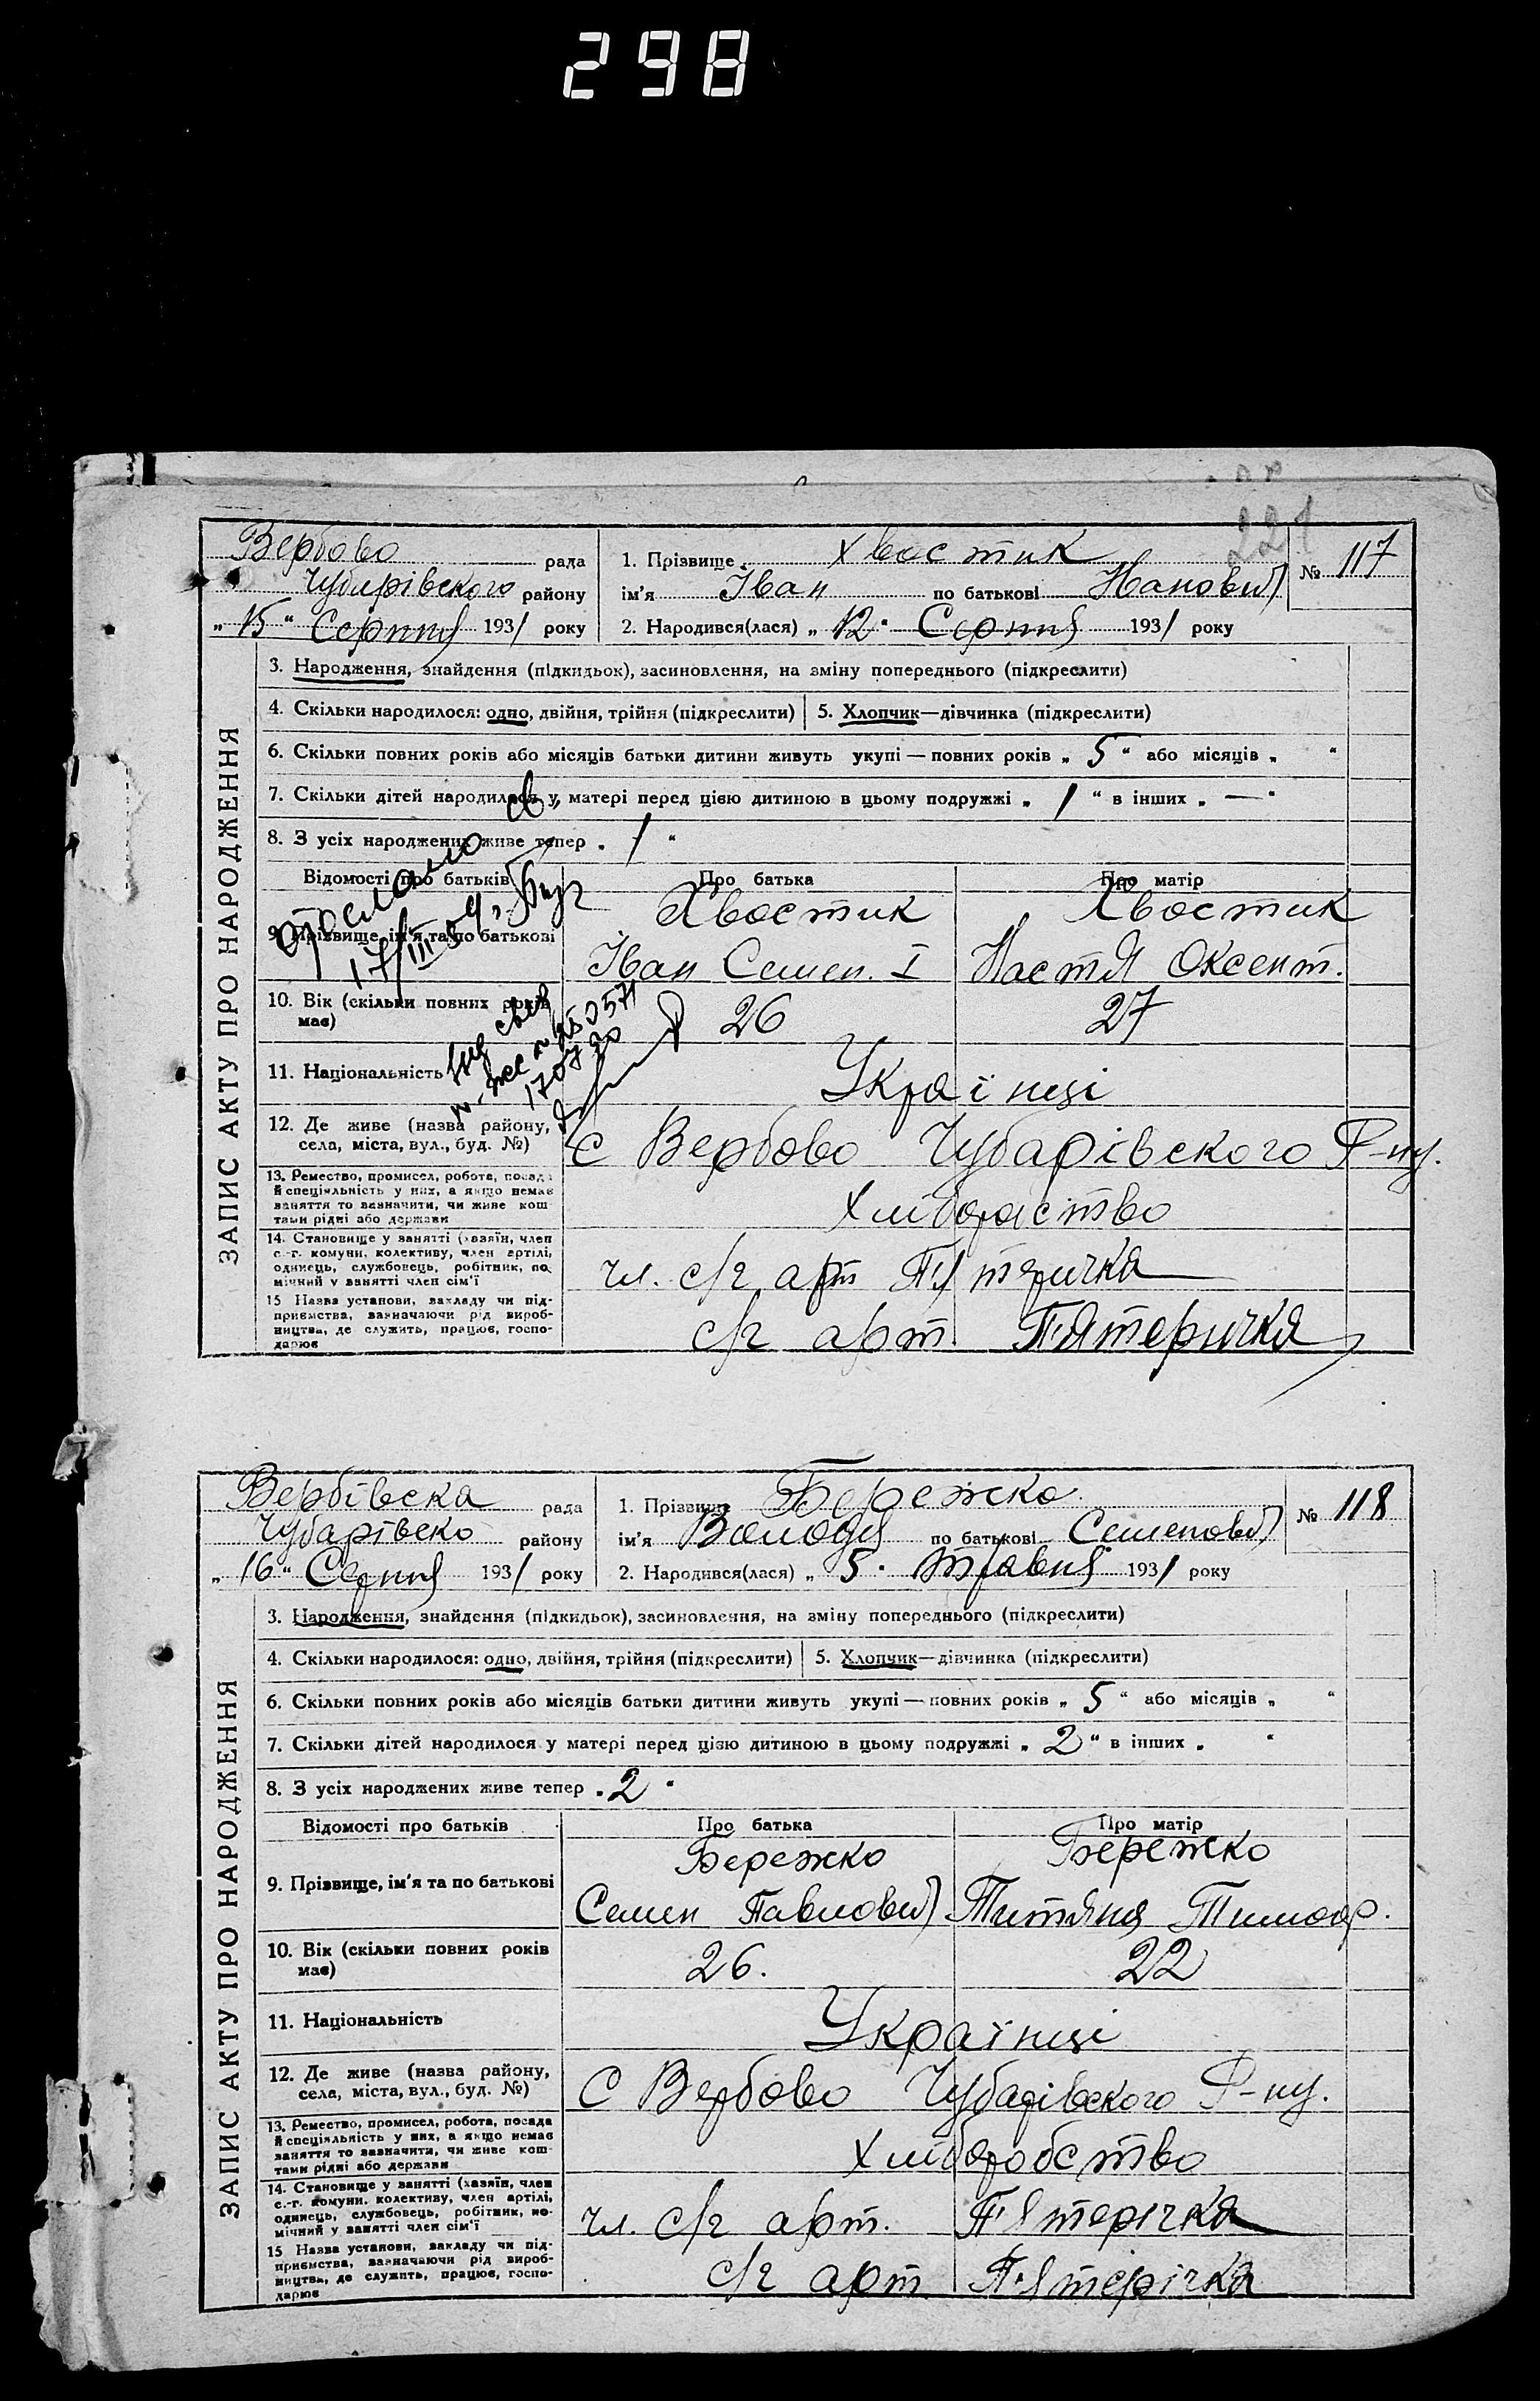 298
221
Вербово рада
Чубарівского району
„ 15 “ Серпня 1931 року
1. Прізвище Хвостик
ім'я Іван по батькові Іванович
№ 117
2. Народився(лася) „ 12 “ Серпня 1931 року
ЗАПИС АКТУ ПРО НАРОДЖЕННЯ
3. Народження, знайдення (підкидьок), засиновлення, на зміну попереднього (підкреслити)
4. Скільки народилося: одно, двійня, трійня (підкреслити) 5. Хлопчик—дівчинка (підкреслити)
6. Скільки повних років або місяців батьки дитини живуть укупі — повних років „ 5 “ або місяців „ “
7. Скільки дітей народилося у матері перед цією дитиною в цьому подружжі „ 1 “ в інших „ — “
8. З усіх народжених живе тепер „ 1 “
Відомості про батьків Про батька Про матір
Хвостик Хвостик
9. Прізвище, ім'я та по батькові
Іван Семен. I Настя Оксент.
10. Вік (скільки повних років
має)
26 27
11. Національність Українці
12. Де живе (назва району,
села, міста, вул., буд. №)
с Вербово Чубарівского Р-ну.
13. Ремество, промисел, робота, посада
й спеціяльність у них, а якщо немає
заняття то зазначити, чи живе кош
тами рідні або держави
Хліборобство
14. Становище у занятті (хазяїн, член
с.-г. комуни, колективу, член артілі,
одинець, службовець, робітник, по
мічний у занятті член сім'ї
чл. с/г арт П'ятеричка
15 Назва установи, закладу чи під-
приємства, зазначаючи рід вироб-
ництва, де служить, працює, госпо-
дарює
с/г арт. П'ятеричка
отослано
17/III
Вербівска рада
Чубарівско району
„ 16 “ Серпня 1931 року
1. Прізвище Бережко
ім'я Володя по батькові Семенович
№ 118
2. Народився(лася) „ 5 “ травня 1931 року
ЗАПИС АКТУ ПРО НАРОДЖЕННЯ
3. Народження, знайдення (підкидьок), засиновлення, на зміну попереднього (підкреслити)
4. Скільки народилося: одно, двійня, трійня (підкреслити) 5. Хлопчик—дівчинка (підкреслити)
6. Скільки повних років або місяців батьки дитини живуть укупі — повних років „ 5 “ або місяців „ “
7. Скільки дітей народилося у матері перед цією дитиною в цьому подружжі „ 2 “ в інших „ “
8. З усіх народжених живе тепер „ 2 “
Відомості про батьків Про батька Про матір
Бережко Бережко
9. Прізвище, ім'я та по батькові
Семен Павлович Титяня Тимоф.
10. Вік (скільки повних років
має)
26. 22
11. Національність Українці
12. Де живе (назва району,
села, міста, вул., буд. №)
С Вербово Чубарівского Р-ну.
13. Ремество, промисел, робота, посада
й спеціяльність у них, а якщо немає
заняття то зазначити, чи живе кош-
тами рідні або держави
Хліборобство
14. Становище у занятті (хазяїн, член
с.-г. комуни, колективу, член артілі,
одинець, службовець, робітник, по-
мічний у занятті член сім'ї
чл. с/г арт. П'ятерічка
15 Назва установи, закладу чи під-
приємства, зазначаючи рід вироб-
ництва, де служить, працює, госпо-
дарює
с/г арт П'ятерічка